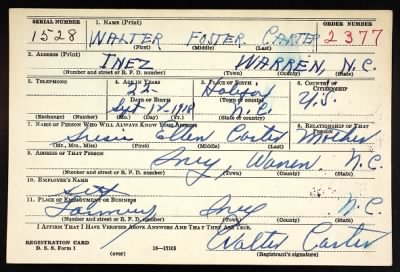 SERIAL NUMBER 1. NAME (Print) ORDER NUMBER
1528 WALTER FOSTER CARTER 2377
(First) (Middle) (Last)
2. ADDRESS (Print)
INEZ WARREN, N.C.
(Number and street or R. F. D. number) (Town) (County) (State)
3. TELEPHONE 4. AGE IN YEARS 5. PLACE OF BIRTH 6. COUNTRY OF CITIZENSHIP
22 Halifax
DATE OF BIRTH (Town or county) U.S.
Sept 17 1918 N.C.
(Exchange) (Number) (Mo.) (Day) (Yr.) (State or country)
7. NAME OF PERSON WHO WILL ALWAYS KNOW YOUR ADDRESS 8. RELATIONSHIP OF THAT PERSON
Ellen Carter Mother
(Mr., Mrs., Miss) (First) (Middle) (Last)
9. ADDRESS OF THAT PERSON
Inez Warren N.C.
(Number and street or R. F. D. number) (Town) (County) (State)
10. EMPLOYER'S NAME
Self
11. PLACE OF EMPLOYMENT OR BUSINESS
Farming Inez N.C.
(Number and street or R. F. D. number) (Town) (County) (State)
I AFFIRM THAT I HAVE VERIFIED ABOVE ANSWERS AND THAT THEY ARE TRUE.
REGISTRATION CARD Walter Carter
D. S. S. Form 1 (over) 16—17105 (Registrant's signature)